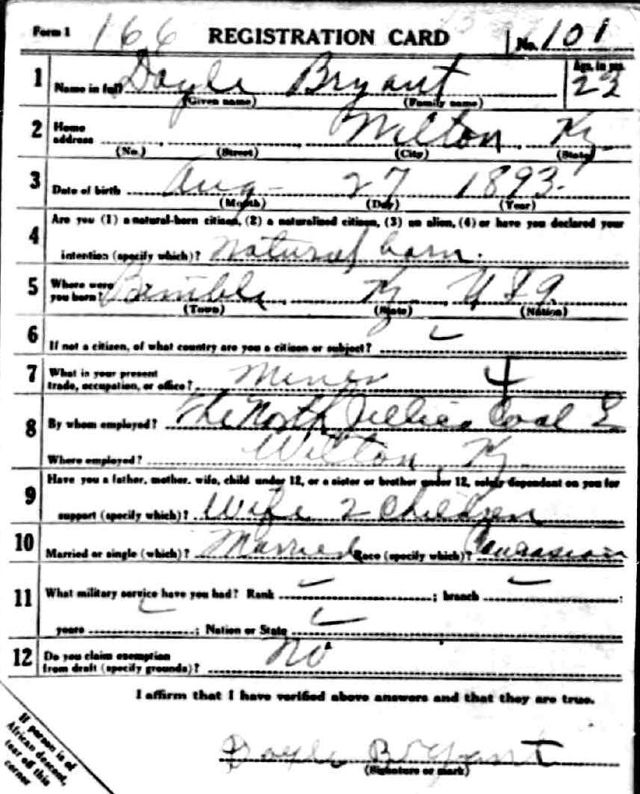 Form 1 166 REGISTRATION CARD No. 101
1 Name in full Doyle Bryant Age, in yrs. 23
(Given name) (Family name)
2 Home address Wilton Ky
(No.) (Street) (City) (State)
3 Date of birth Aug- 27 1893-
(Month) (Day) (Year)
4 Are you (1) a natural-born citizen, (2) a naturalized citizen, (3) an alien, (4) or have you declared your
intention (specify which)? Natural born.
5 Where were you born? Bimble Ky U S A
(Town) (State) (Nation)
6 If not a citizen, of what country are you a citizen or subject?
7 What is your present trade, occupation, or office? Miner 4
8 By whom employed? The North Jellico Coal
Where employed? Wilton, Ky
9 Have you a father, mother, wife, child under 12, or a sister or brother under 12, solely dependent on you for
support (specify which)? Wife 2 Children
10 Married or single (which)? Married Race (specify which)? Caucasian
11 What military service have you had? Rank ; branch ;
years ; Nation or State
12 Do you claim exemption from draft (specify grounds)? No
I affirm that I have verified above answers and that they are true.
Doyle Bryant
(Signature or mark)
If person is of
African descent,
tear off this
corner